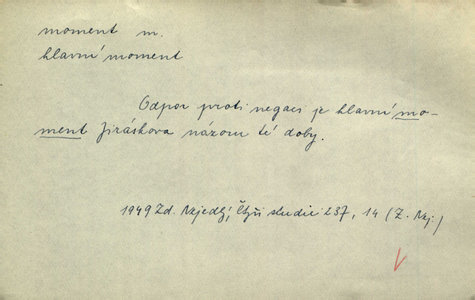 moment m.
hlavní moment
Odpor proti negaci je hlavní mo-
ment Jiráskova názoru té doby.
1949 Zd. Nejedlý, Čtyři studie 237, 14 (Z. Nej.)